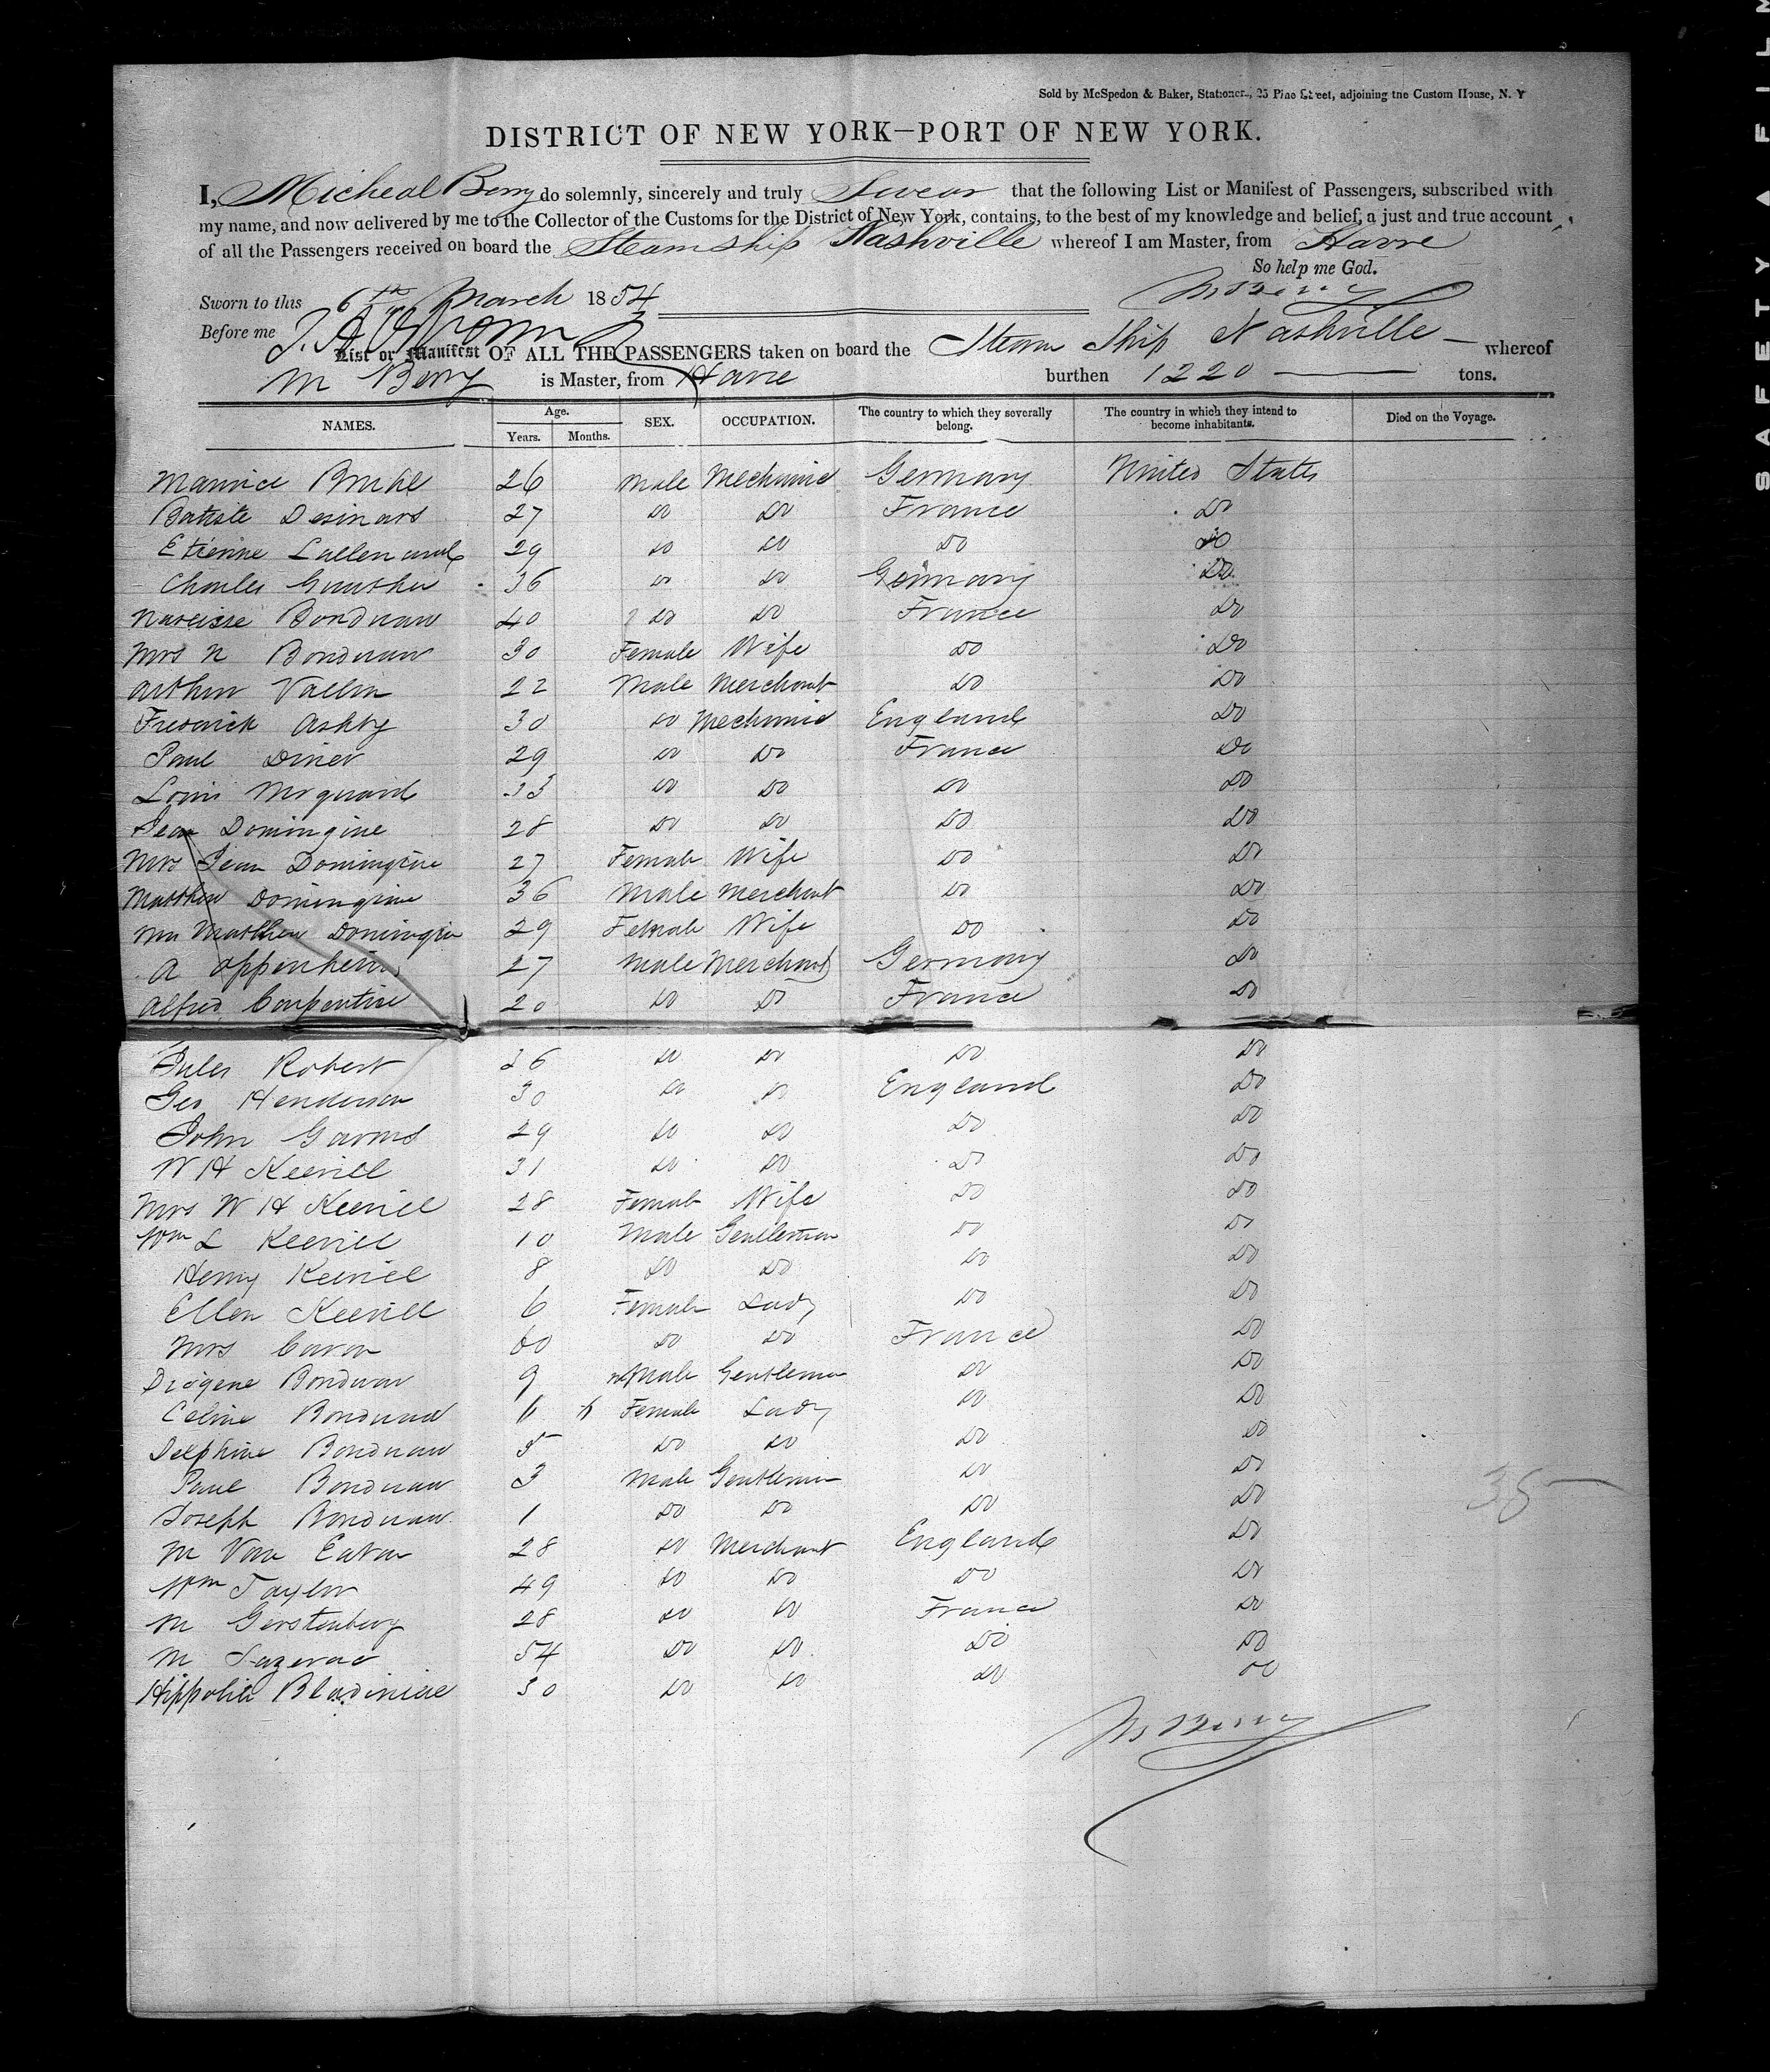 Sold by McSpedon & Baker, Stationers, 25 Pine Street, adjoining the Custom House, N. Y
DISTRICT OF NEW YORK—PORT OF NEW YORK.
I, Micheal Berry do solemnly, sincerely and truly Swear that the following List or Manifest of Passengers, subscribed with
my name, and now delivered by me to the Collector of the Customs for the District of New York, contains, to the best of my knowledge and belief, a just and true account
of all the Passengers received on board the Steam ship Nashville whereof I am Master, from Havre
So help me God.
Sworn to this 6th March 1854 M Berry
Before me
List or Manifest OF ALL THE PASSENGERS taken on board the Steam Ship Nashville — whereof
M Berry is Master, from Havre burthen 1220 — tons.
NAMES. Age. Years. Months. SEX. OCCUPATION. The country to which they severally belong. The country in which they intend to become inhabitants. Died on the Voyage.
Maurice Bruhl 26 Male Mechanic Germany United States
Batiste Desinars 27 Do Do France Do
Etienne Lallemand 29 Do Do Do Do
Charles Gauthier 36 Do Do Germany Do
Narcisse Bonduaw 40 Do Do France Do
Mrs N Bonduaw 30 Female Wife Do Do
Arthur Vallin 22 Male Merchant Do Do
Frederick Ashby 30 Do Mechanic England Do
Paul Diner 29 Do Do France Do
Louis 33 Do Do Do Do
Jean Domingine 28 Do Do Do Do
Mrs Jean Domingine 27 Female Wife Do Do
Matthew Domingine 36 Male Merchant Do Do
Mrs Matthew Domingine 29 Female Wife Do Do
A Oppenheim 27 Male Merchant Germany Do
Alfred Carpentier 20 Do Do France Do
Jules Robert 36 Do Do Do Do
Geo Henderson 30 Do Do England Do
John 29 Do Do Do Do
W H Keevill 31 Do Do Do Do
Mrs W H Keevill 28 Female Wife Do Do
Wm L Keevill 10 Male Gentleman Do Do
Henry Keevill 8 Do Do Do Do
Ellen Keevill 6 Female Lady Do Do
Mrs Caron 60 Do Do France Do
Diogene Bonduaw 9 Male Gentleman Do Do
Celine Bonduaw 6 Female Lady Do Do
Delphine Bonduaw 5 Do Do Do Do
Paul Bonduaw 3 Male Gentleman Do Do
Joseph Bonduaw 1 Do Do Do Do
M Van Eaton 28 Do Merchant England Do
Wm Taylor 49 Do Do Do Do
M Gerstenberg 28 Do Do France Do
M Lazerac 54 Do Do Do Do
Hippolite 30 Do Do Do Do
35
M Berry
SAFETY A FILM